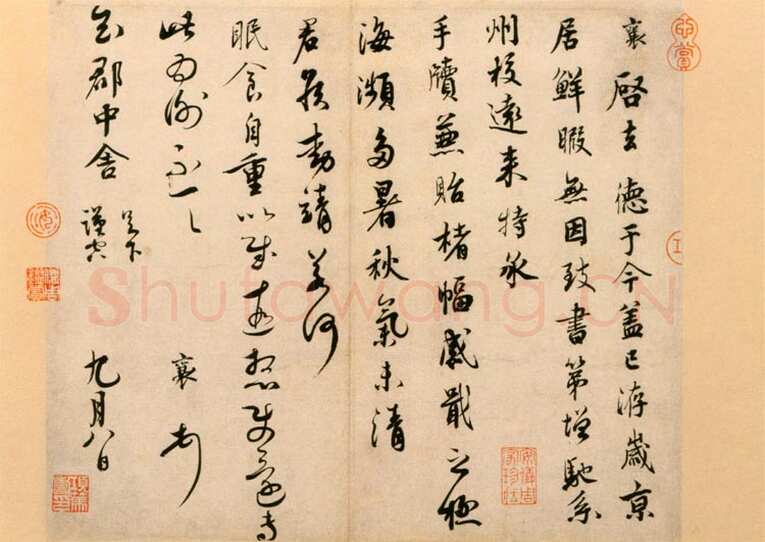 襄啓去德于今蓋已洊歲京
居鮮暇無因致書第增馳系
州校遠来特承
手牘兼貽楮幅感戢之極
海瀕多暑秋氣未清
君侯動静若何
眠食自重以遠想還專
此為謝不一一
襄
知郡中舍
足下
謹空
九月八日
Shufawang.CN